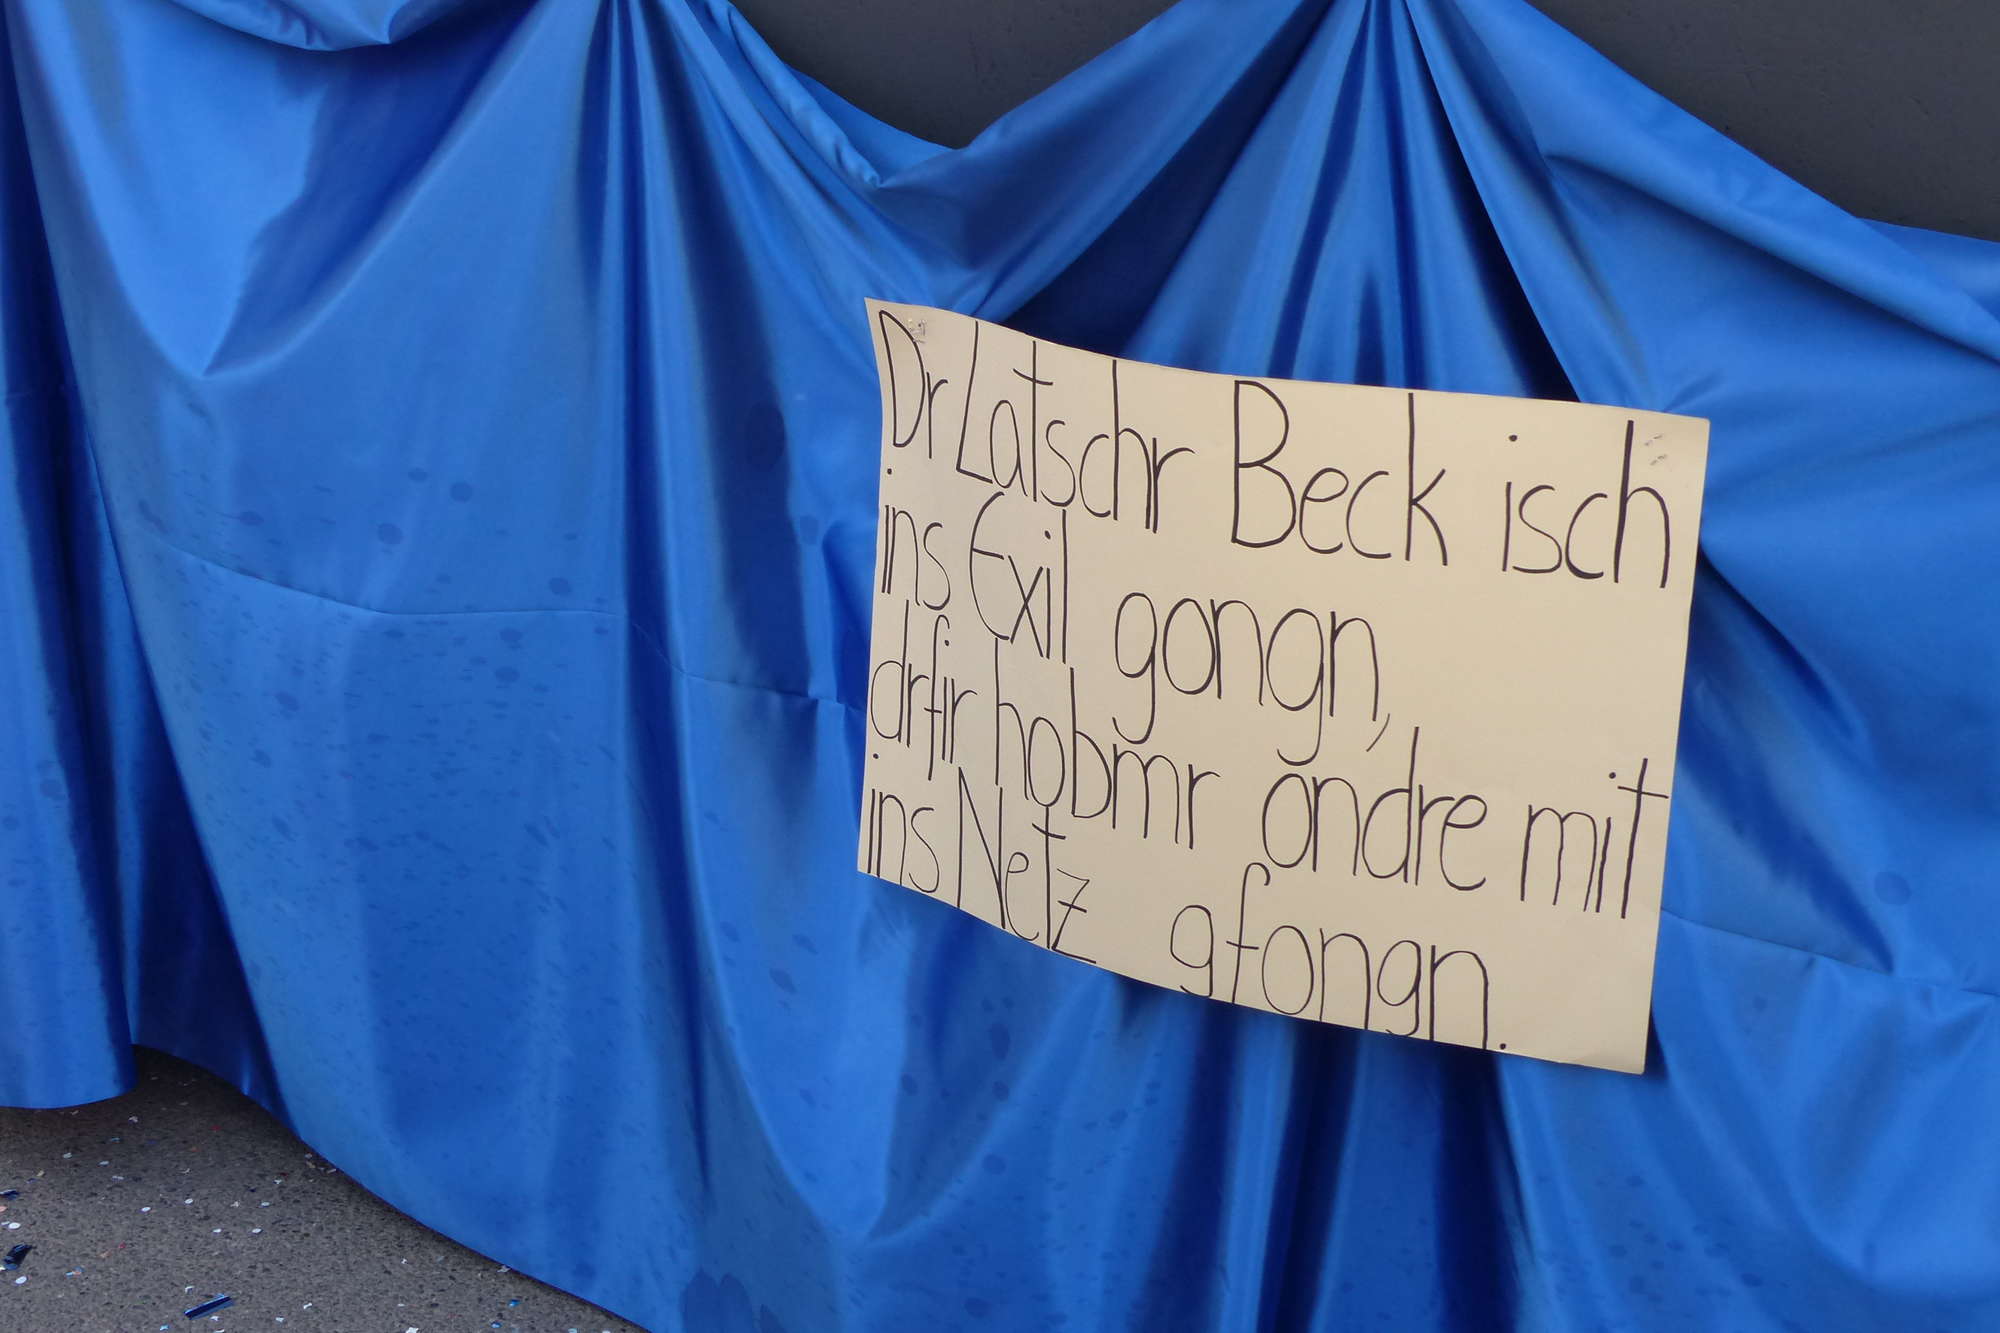 Dr Latschr Beck isch
ins Exil gongn,
drfir hobmr ondre mit
ins Netz gfongn.